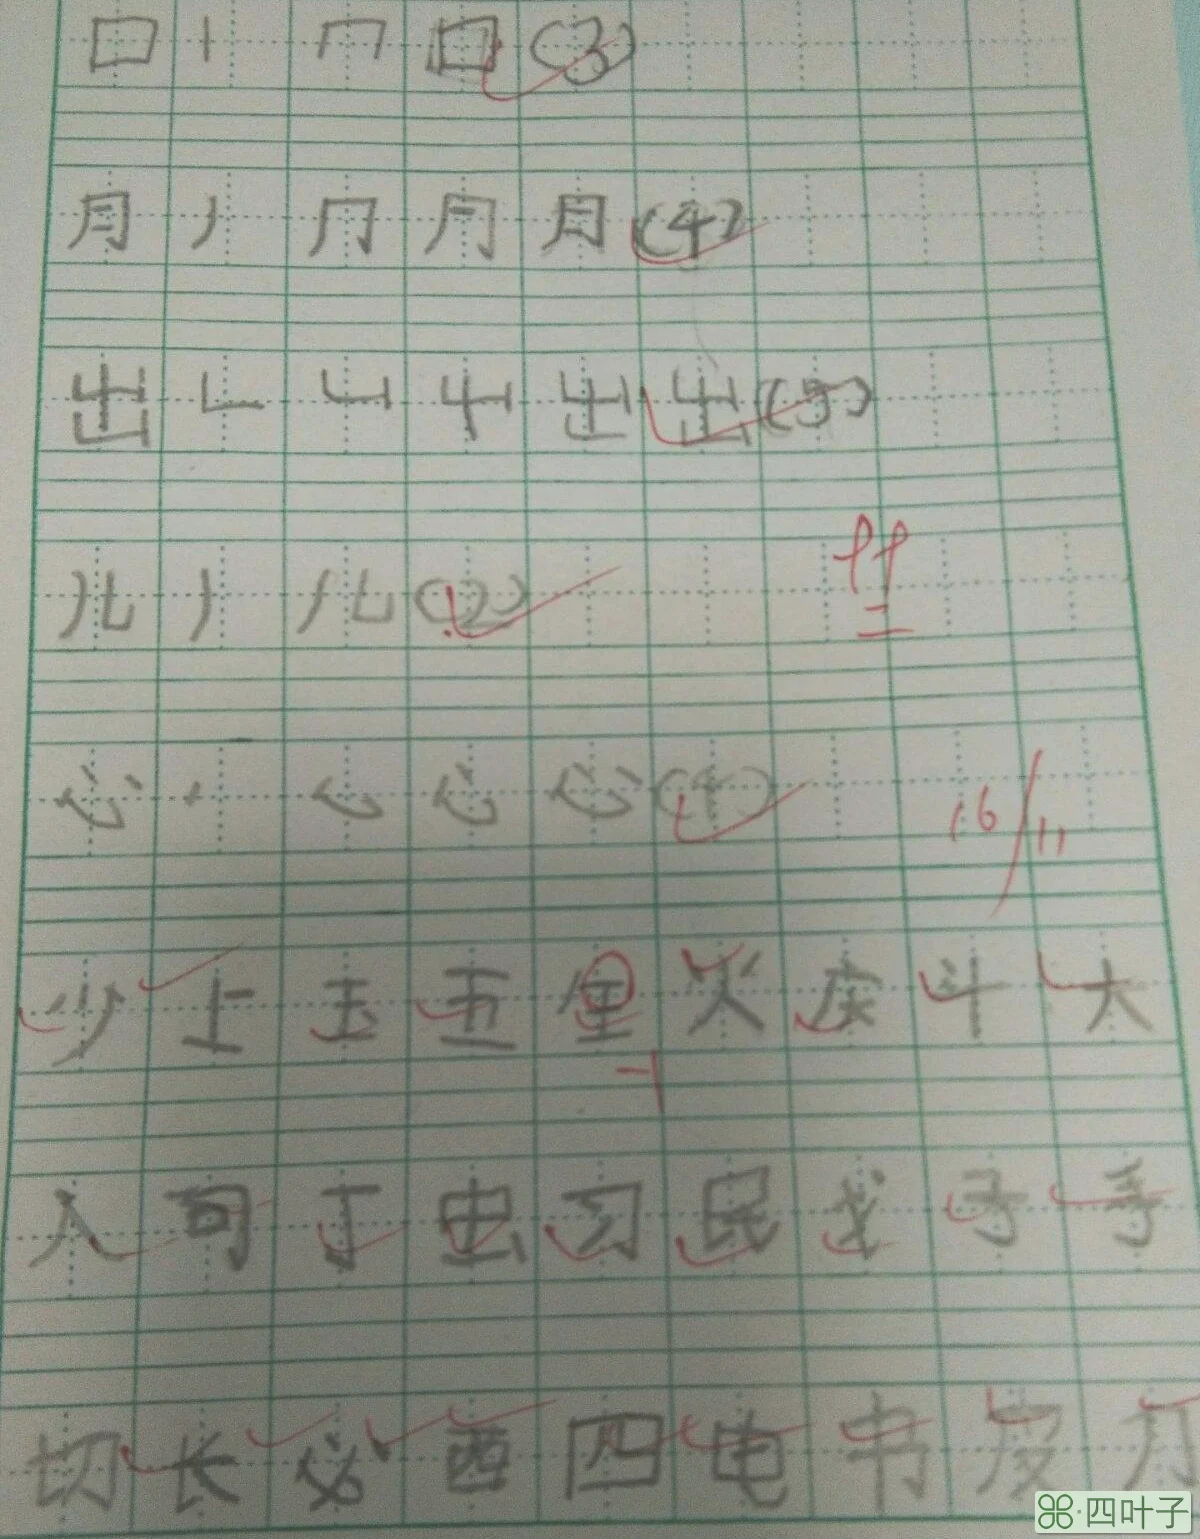 口 丨 冂 口 (3)
月 丿 ⺆ 月 (4)
出 ㇄ 凵 屮 出 (5)
儿 丿 儿 (2)
心 丶 心 心 (4)
16/11
少 上 玉 五 火 皮 斗 大
-1
人 司 丁 虫 习 民 我 子 手
切 长 必 西 四 电 书 皮 月
四叶子